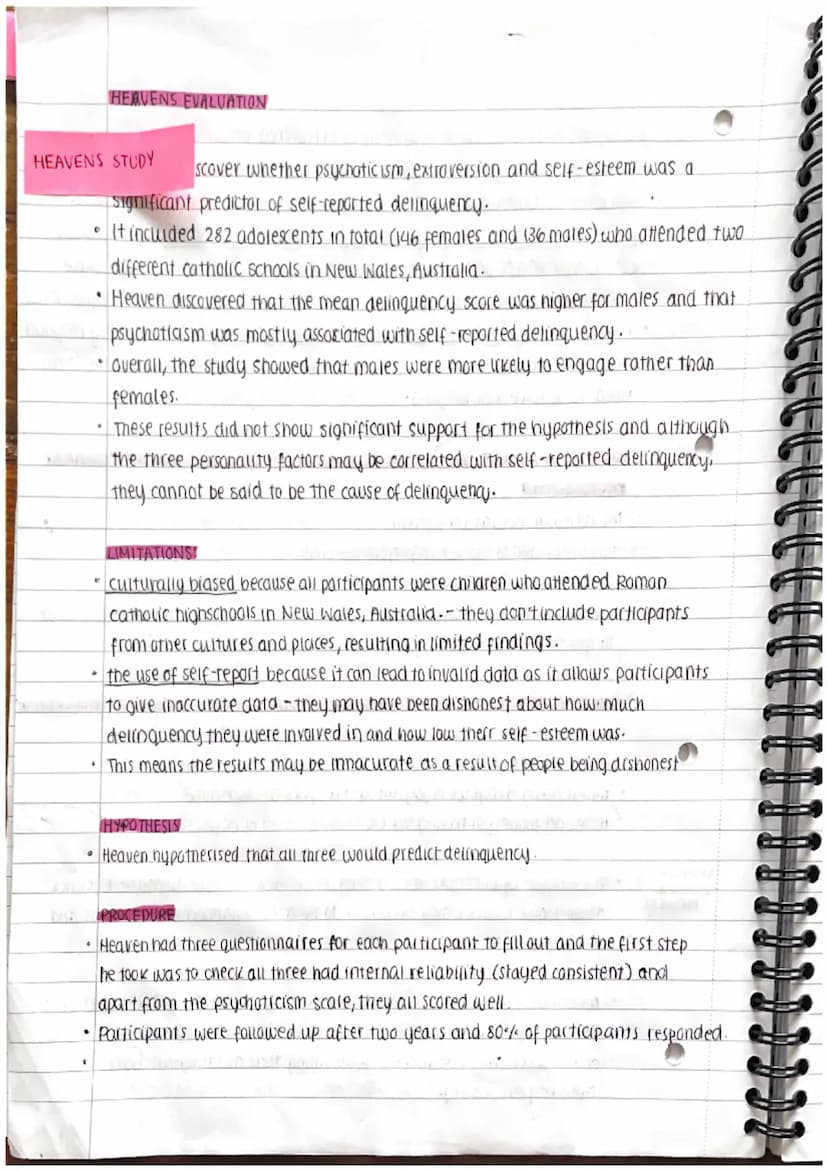 HEAVENS EVALUATION
HEAVENS STUDY
scover whether psychoticism, extroversion and self-esteem was a
significant predictor of self-reported delinquency.
• It included 282 adolescents in total (146 females and 136 males) who attended two
different catholic schools in New Wales, Australia.
• Heaven discovered that the mean delinquency score was higher for males and that
psychoticism was mostly associated with self-reported delinquency.
• Overall, the study showed that males were more likely to engage rather than
females.
• These results did not show significant support for the hypothesis and although
the three personality factors may be correlated with self-reported delinquency,
they cannot be said to be the cause of delinquency.
LIMITATIONS:
• culturally biased because all participants were children who attended Roman
catholic highschools in New Wales, Australia. - they don't include participants
from other cultures and places, resulting in limited findings.
• the use of self-report because it can lead to invalid data as it allows participants
to give inaccurate data - they may have been dishonest about how much
delinquency they were involved in and how low their self-esteem was.
• This means the results may be innacurate as a result of people being dishonest
HYPOTHESIS
• Heaven hypothesised that all three would predict delinquency.
PROCEDURE
• Heaven had three questionnaires for each participant to fill out and the first step
he took was to check all three had internal reliability (stayed consistent) and
apart from the psychoticism scale, they all scored well.
• Participants were followed up after two years and 80% of participants responded.
•